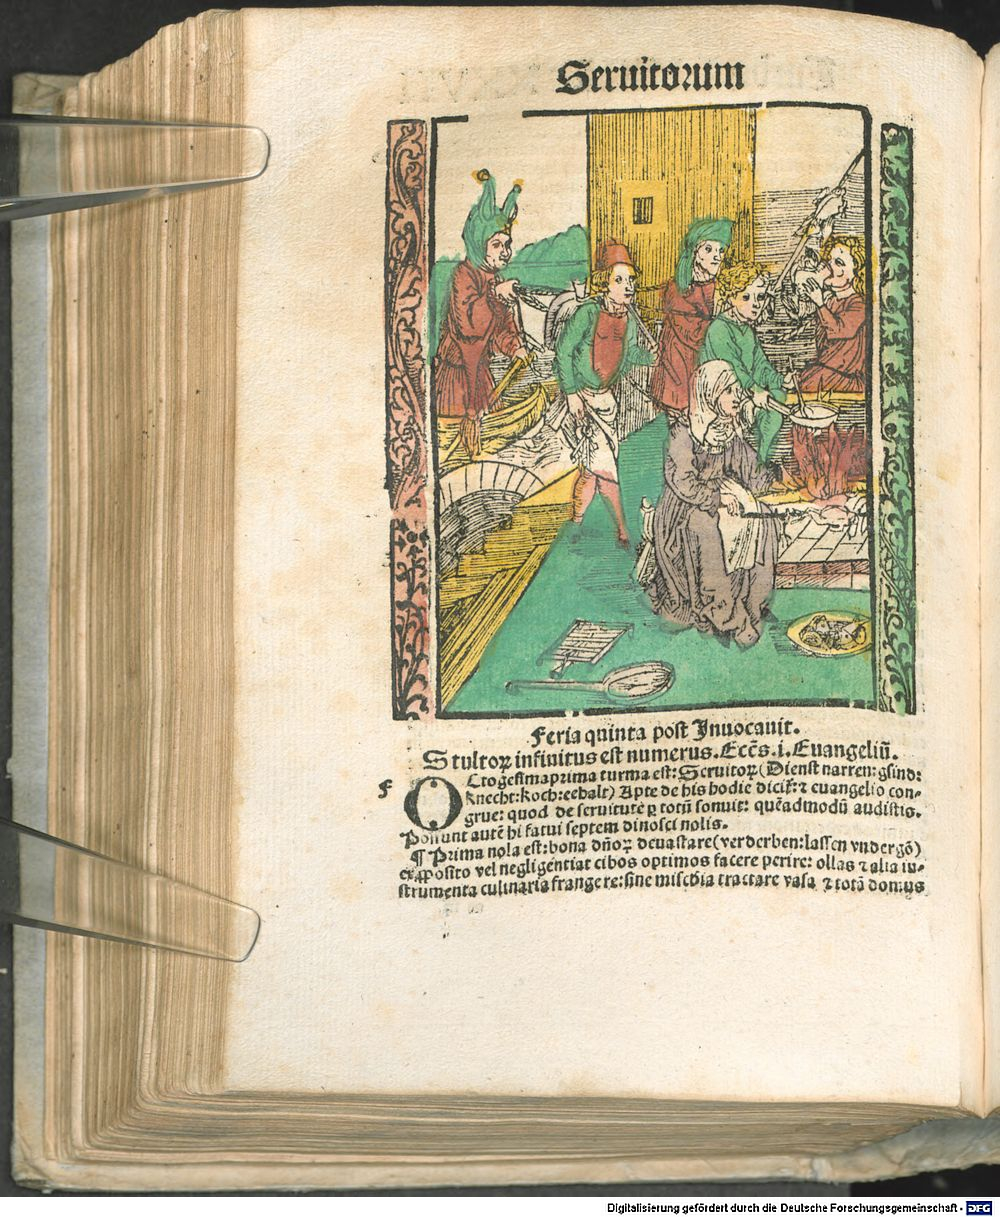 Seruitoꝛum
Feria quinta post Inuocauit.
Stultoꝝ infinitus est numerus. Eccẽs. i. Euangeliũ.
f
OCtogesimaprima turma est: Seruitoꝝ (Dienst narren: gsind:
knecht: koch: eehalt) Apte de his hodie dicit̃: ⁊ euangelio con-
grue: quod de seruitute ꝑ totũ sonuit: quẽadmodũ audistis.
Possunt autẽ hi fatui septem dinosci nolis.
¶ Prima nola est: bona dñoꝝ deuastare (verderben: lassen vndergõ)
ex ꝓposito vel negligentia: cibos optimos facere perire: ollas ⁊ alia in-
strumenta culinaria frangere: sine mischia tractare vasa ⁊ totã domus
Digitalisierung gefördert durch die Deutsche Forschungsgemeinschaft - DFG